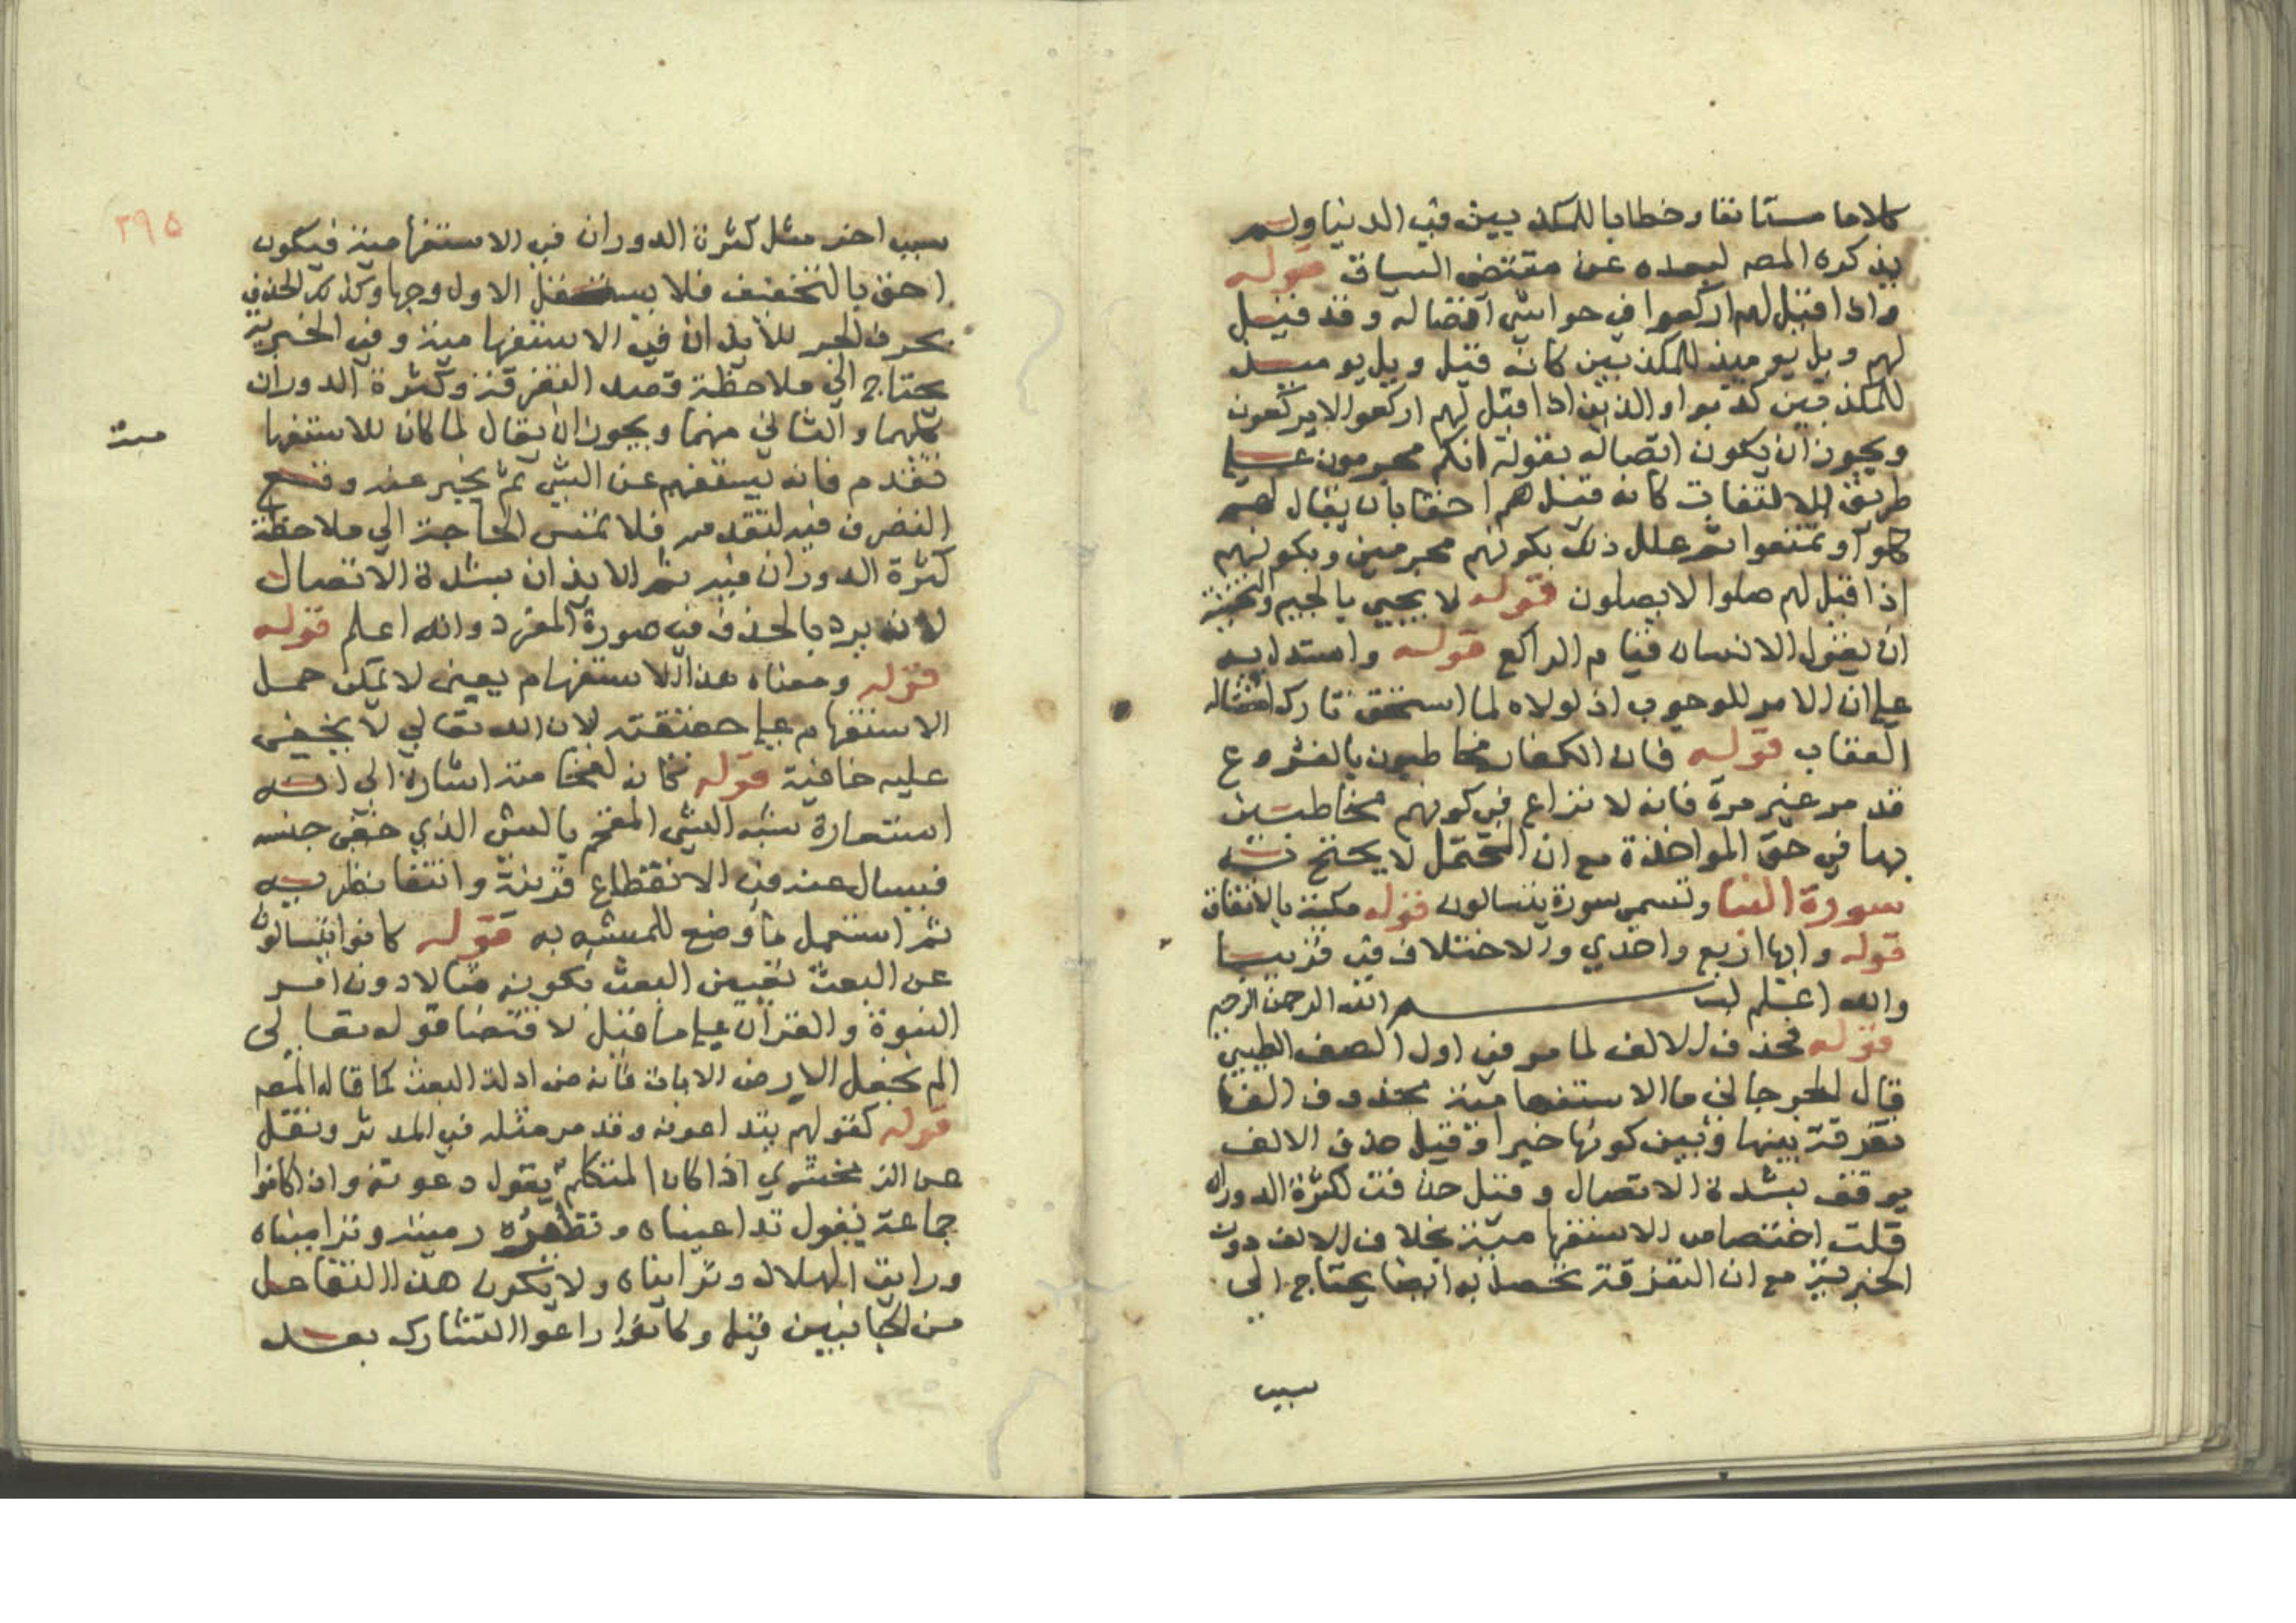 كلاما مستانفا وخطابا للمكذبين في الدنيا ولم
يذكره المصـ لبعده عن مقتضى السياق قوله
واذا قيل لهم اركعوا في حواشي اتصاله وقد قيل
لهم ويل يوميذ للمكذبين كانه قيل ويل يوميذ
للمكذبين كذبوا والذين اذا قيل لهم اركعوا لا يركعون
ويجوز ان يكون اتصاله بقوله انكم مجرمون على
طريق الالتفات كانه قيل هم احقا بان يقال لهم
كلوا وتمتعوا ثم علل ذلك بكونهم مجرمين وبكونهم
اذا قيل لهم صلوا لا يصلون قوله لا يجبي بالجيم والتجبية
ان يقول الانسان قيام الراكع قوله واستدل به
على ان الامر للوجوب اذ لولاه لما استحق تارك امتثاله
العقاب قوله فان الكفار مخاطبون بالفروع
قد مر غير مرة فانه لا نزاع في كونهم مخاطبين
بها في حق المواخذة مع ان المحتمل لا يحتج به
سورة النبا وتسمى سورة يتسالون قوله مكية بالاتفاق
قوله وايها اربع واحدي والاختلاف في قريبا
والله اعلم بسم الله الرحمن الرحيم
قوله فحذف الالف لما مر في اول الصف الطيبي
قال الجرجاني ما الاستفهامية بحذف الفها
تفرقة بينها وبين كونها خبرا وقيل حذف الالف
يوقف بشدة الاتصال وقيل حذفت لكثرة الدوران
قلت اختصاص الاستفهامية بخلاف الالف دون
الخبرية مع ان التفرقة تحصل به ايضا يحتاج الى
سبب
٣٩٥
سبب اخر مثل كثرة الدوران في الاستفهامية فيكون
احق بالتخفيف فلا يستقل الاول وجها وكذلك الحذف
بحرف الجر للايذان في الاستفهامية وفي الخبرية
يحتاج الى ملاحظة قصد التفرقة وكثرة الدوران
كلهما والثاني منهما ويجوز ان يقال لما كان للاستفها
مية
تقدم فانه يستفهم عن الشي ثم يخبر عنه وقع
التصرف فيه لتقدمه فلا تمس الحاجة الى ملاحظة
كثرة الدوران فيه ثم الايذان بشدة الاتصال
لانه يرد بالحذف في صورة المفرد والله اعلم قوله
قوله ومعناه هذا الاستفهام يعني لا يمكن حمل
الاستفهام على حقيقته لان الله تعالى لا يخفى
عليه خافية قوله كانه لفخامته اشارة الى انه
استعارة شبه الشي المفخم بالشي الذي خفي جنسه
فيسال عنه في الانقطاع قرينه وانتفا نظيره
ثم استعمل ما وضع للمشبه به قوله كانوا يتسالون
عن البعث تعيين البعث بكونه مثالا دون امر
النبوة والقران على ما قيل لاقتضا قوله تعالى
الم نجعل الارض الايات فانه من ادلة البعث كما قاله المصـ
قوله كقولهم يتداعونه وقد مر مثله في المدثر ونقل
عن الزمخشري اذا كان المتكلم يقول دعوته وان كانوا
جماعة يقول تداعيناه ونظيره رميته وتراميناه
ورايت الهلال وترايناه ولا يكون هذا التفاعل
من الجانبين قيل وكانوا راعوا التشارك بعد